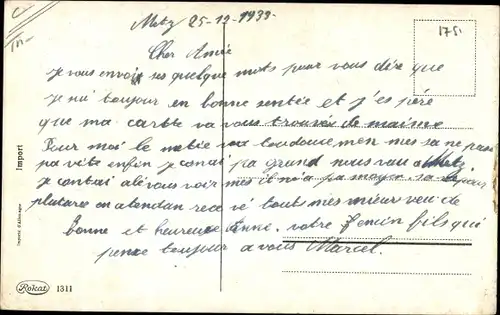 Metz 25-12-1939-
175
Cher Amie
je vous envoi ses quelque mots pour vous dire que
je sui toujour en bonne sentée et j'es père
que ma carbte va vous trouvée de maime
Pour moi le metie va toudoucemen mes sa ne passe
pa vite enfin je conai pa grand nous vau a Metz
je contai alé vous voir mes il ni a pa moyen sa se pour
plutare en atendan rece vé tout mes mieur veu de
bonne et heureuse anné. votre fils qui
pence toujour a vous Marcel.
Import
Importé d'Allemagne
Rokat 1311